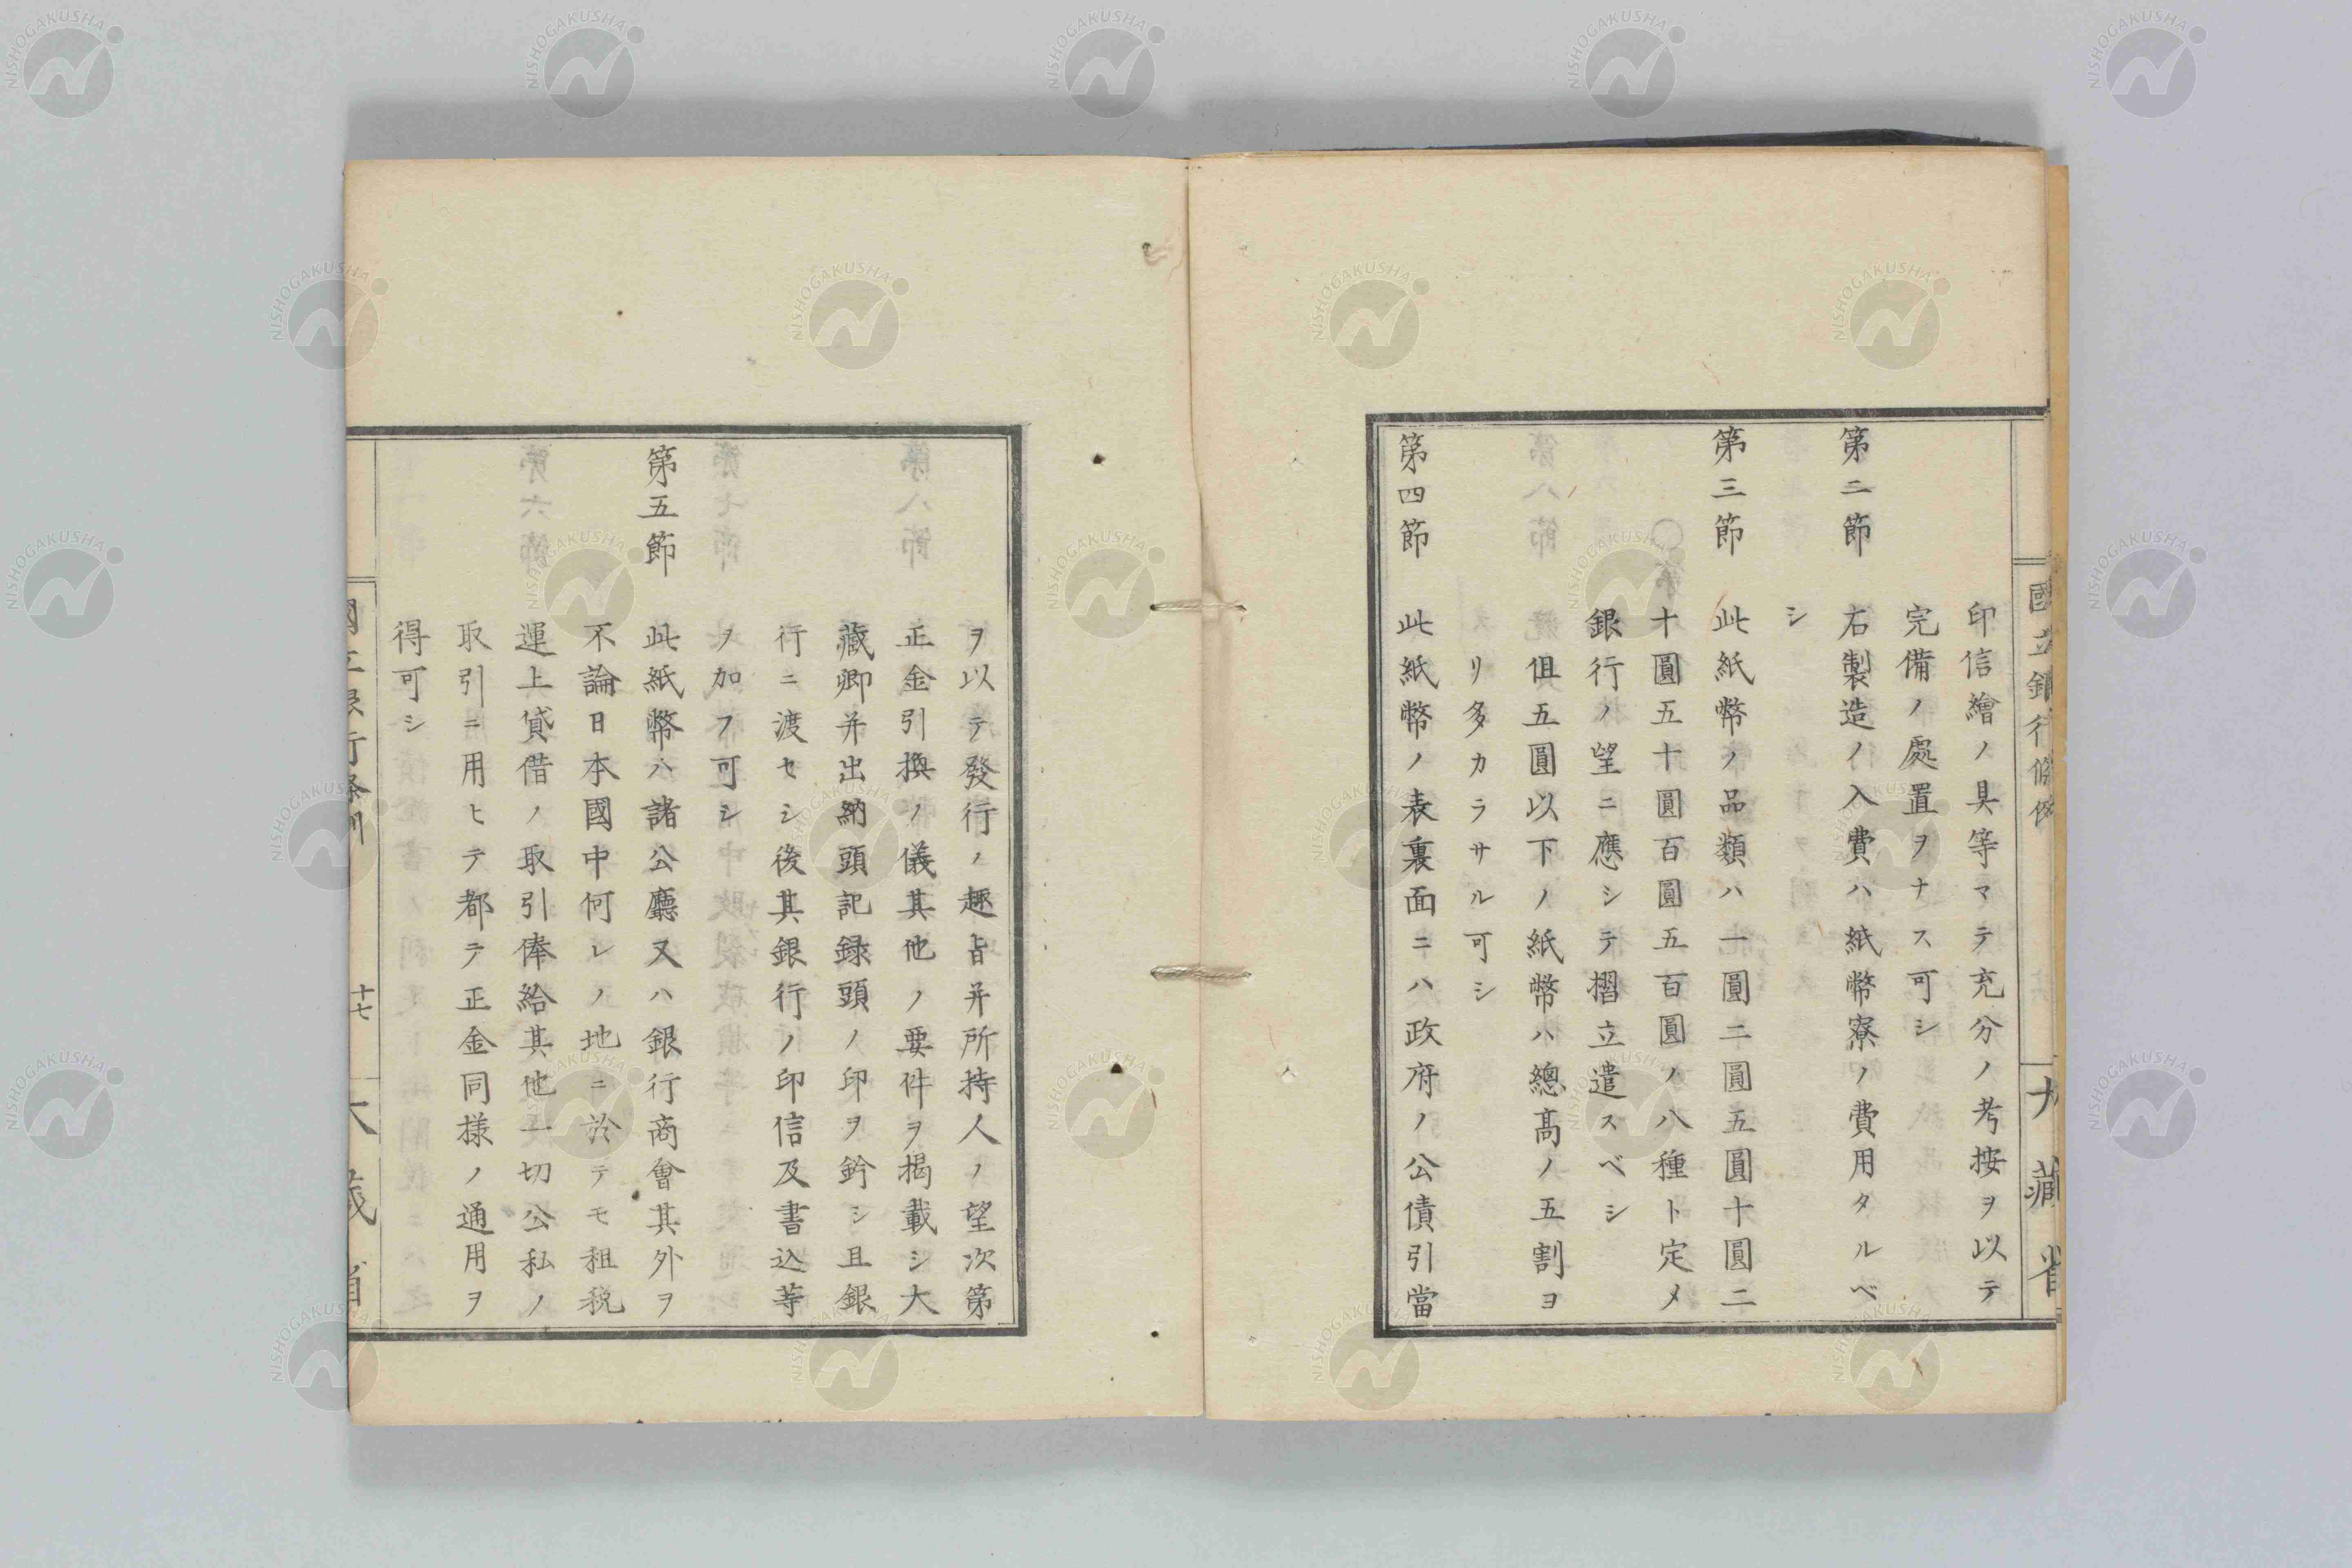 國立銀行條例
大藏省
印信繪ノ具等マテ充分ノ考按ヲ以テ
完備ノ處置ヲナス可シ
第二節 右製造ノ入費ハ紙幣寮ノ費用タルベ
シ
第三節 此紙幣ノ品類ハ一圓二圓五圓十圓二
十圓五十圓百圓五百圓ノ八種ト定メ
銀行ノ望ニ應シテ摺立遣スベシ
但五圓以下ノ紙幣ハ總髙ノ五割ヨ
リ多カラサル可シ
第四節 此紙幣ノ表裏面ニハ政府ノ公債引當
ヲ以テ發行ノ趣旨并所持人ノ望次第
正金引換ノ儀其他ノ要件ヲ掲載シ大
藏卿并出納頭記録頭ノ印ヲ鈐シ且銀
行ニ渡セシ後其銀行ノ印信及書込等
ヲ加フ可シ
第五節 此紙幣ハ諸公廳又ハ銀行商會其外ヲ
不論日本國中何レノ地ニ於テモ租税
運上貸借ノ取引俸給其他一切公私ノ
取引ニ用ヒテ都テ正金同様ノ通用ヲ
得可シ
國立銀行條例
十七
大藏省
NISHOGAKUSHA